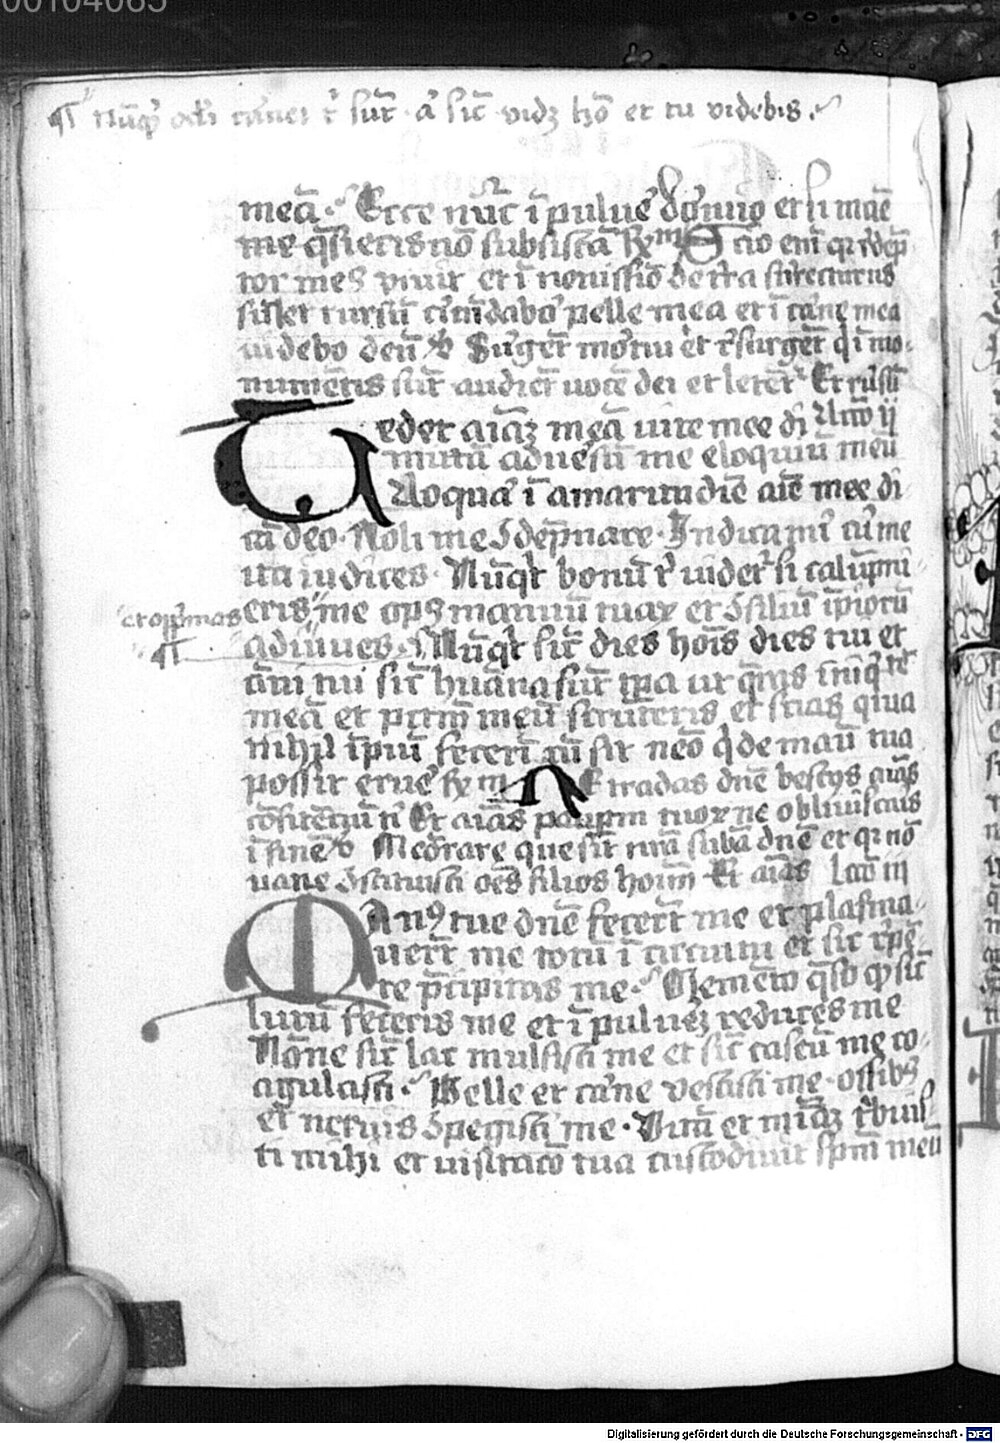 00104065
¶ Nūq̄ ocl̓i carnei t̓ sūt · aͭ sic̄ vidꝫ hō et tu videbis.
meā. Ecce nūc ī pulue̓ dormio et si mae̅
me q̄sieris nō subsistā Ry̅m Scio eni̅ qꝛ rede̅p
tor meꝰ viuit et ī nouissi̅o de t̓ra surrecturus
su̅ et rursu̅ ci̓cūdabo̓ pelle mea et ī ca̓ne mea
uidebo deū ℣ Surgēt mo̓tui et r̓surgēt q̓ ī mo-
numētis sūt audiēt uocē dei et Et rūsū
Tedet aīaꝫ meā uite mee di Lc̄o ij
mittā adue̓sū me eloquiū meū
Loqua̓ ī amaritudīe aīe mee di
cā deo. Noli me ꝯdēpnare. Indica mi̓ cu̓ me
ita iudices. Nūqͥd bonū t̓ uidet̓ si calūpni-
eris me opꝰ manuū tuaꝝ et ꝯsiliū īpioꝝ
et opp̓mas
adiuues. Nūqͥd sic̄ dies hoīs dies tui et
āni tui sic̄ huāna sūt tp̄a ut q̄ras iniqͥtē
meā et pctm̄ meū scruteris et scias quia
nihil īpiū fecerī cū sit nēo qͥ de manū tua
possit erue̓ Ry̅m Ne tradas dn̄e bestijs aīas
cōfitētiū ti̓ Et aīas paupm̄ tuoꝝ ne obliuiscaris
ī finē ℣ Mēorare que sit mā subā dn̄e et qꝛ nō
uane ꝯstituisti oēs filios hoīm Et aīas Lc̄o iij
Manꝰ tue dn̄e fecerūt me et plasma-
uerūt me totū ī circuitu et sic r̓pē-
te p̄cipitas me. Memēto q̄so qꝙ sic̄
lutū feceris me et ī pulueꝫ reduces me
Nōne sic̄ lac mulsisti me et sic̄ caseū me co-
agulasti. Pelle et ca̓ne vestisti me. ossibꝰ
et neruis ꝯpegisti me. Vitā et mīaꝫ t̓buis-
ti mihi et uisitacō tua custodiuit spm̄ meū
Digitalisierung gefördert durch die Deutsche Forschungsgemeinschaft - DFG